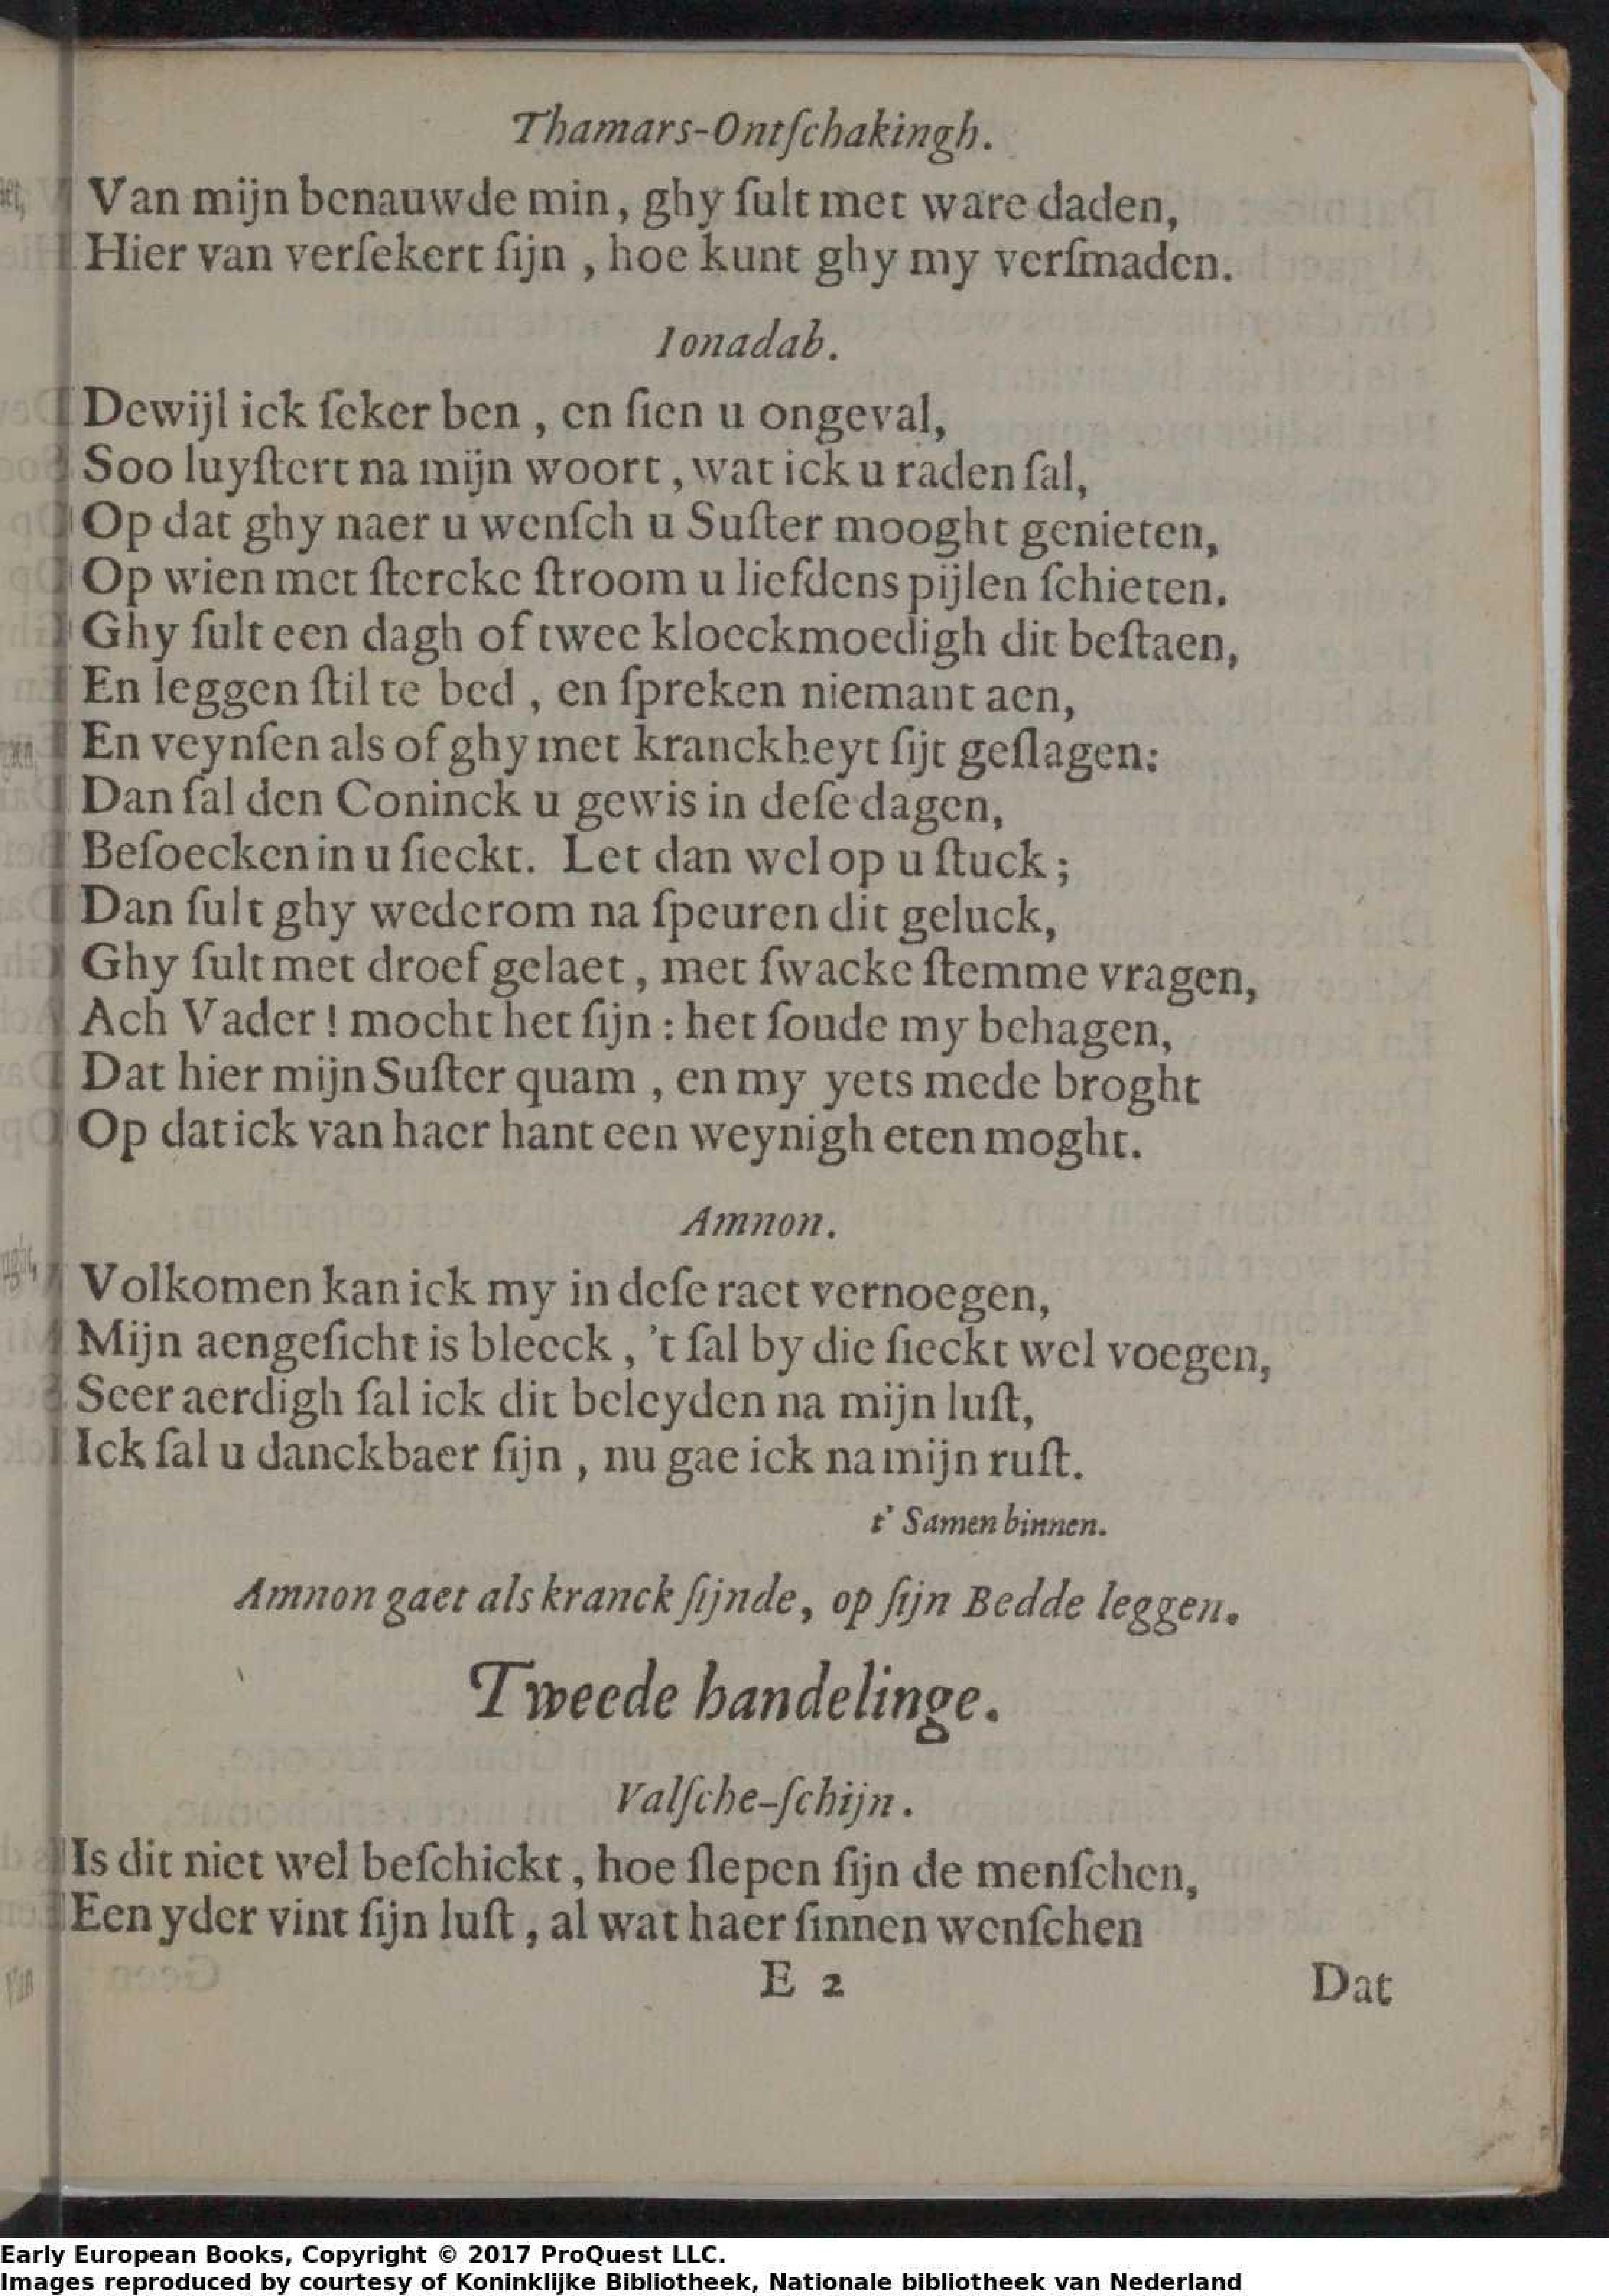 Thamars-Ontſchakingh.
Van mijn benauwde min, ghy ſult met ware daden,
Hier van verſekert ſijn , hoe kunt ghy my verſmaden.
Ionadab.
Dewijl ick ſeker ben , en ſien u ongeval,
Soo luyſtert na mijn woort , wat ick u raden ſal,
Op dat ghy naer u wenſch u Suſter mooght genieten,
Op wien met ſtercke ſtroom u liefdens pijlen ſchieten.
Ghy ſult een dagh of twee kloeckmoedigh dit beſtaen,
En leggen ſtil te bed , en ſpreken niemant aen,
En veynſen als of ghy met kranckheyt ſijt geſlagen:
Dan ſal den Coninck u gewis in deſe dagen,
Beſoecken in u ſieckt. Let dan wel op u ſtuck ;
Dan ſult ghy wederom na ſpeuren dit geluck,
Ghy ſult met droef gelaet , met ſwacke ſtemme vragen,
Ach Vader ! mocht het ſijn : het ſoude my behagen,
Dat hier mijn Suſter quam , en my yets mede broght
Op dat ick van haer hant een weynigh eten moght.
Amnon.
Volkomen kan ick my in deſe raet vernoegen,
Mijn aengeſicht is bleeck , 't ſal by die ſieckt wel voegen,
Seer aerdigh ſal ick dit beleyden na mijn luſt,
Ick ſal u danckbaer ſijn , nu gae ick na mijn ruſt.
t' Samen binnen.
Amnon gaet als kranck ſijnde, op ſijn Bedde leggen.
Tweede handelinge.
Valſche-ſchijn.
Is dit niet wel beſchickt , hoe ſlepen ſijn de menſchen,
Een yder vint ſijn luſt , al wat haer ſinnen wenſchen
E 2 Dat
Early European Books, Copyright © 2017 ProQuest LLC.
Images reproduced by courtesy of Koninklijke Bibliotheek, Nationale bibliotheek van Nederland